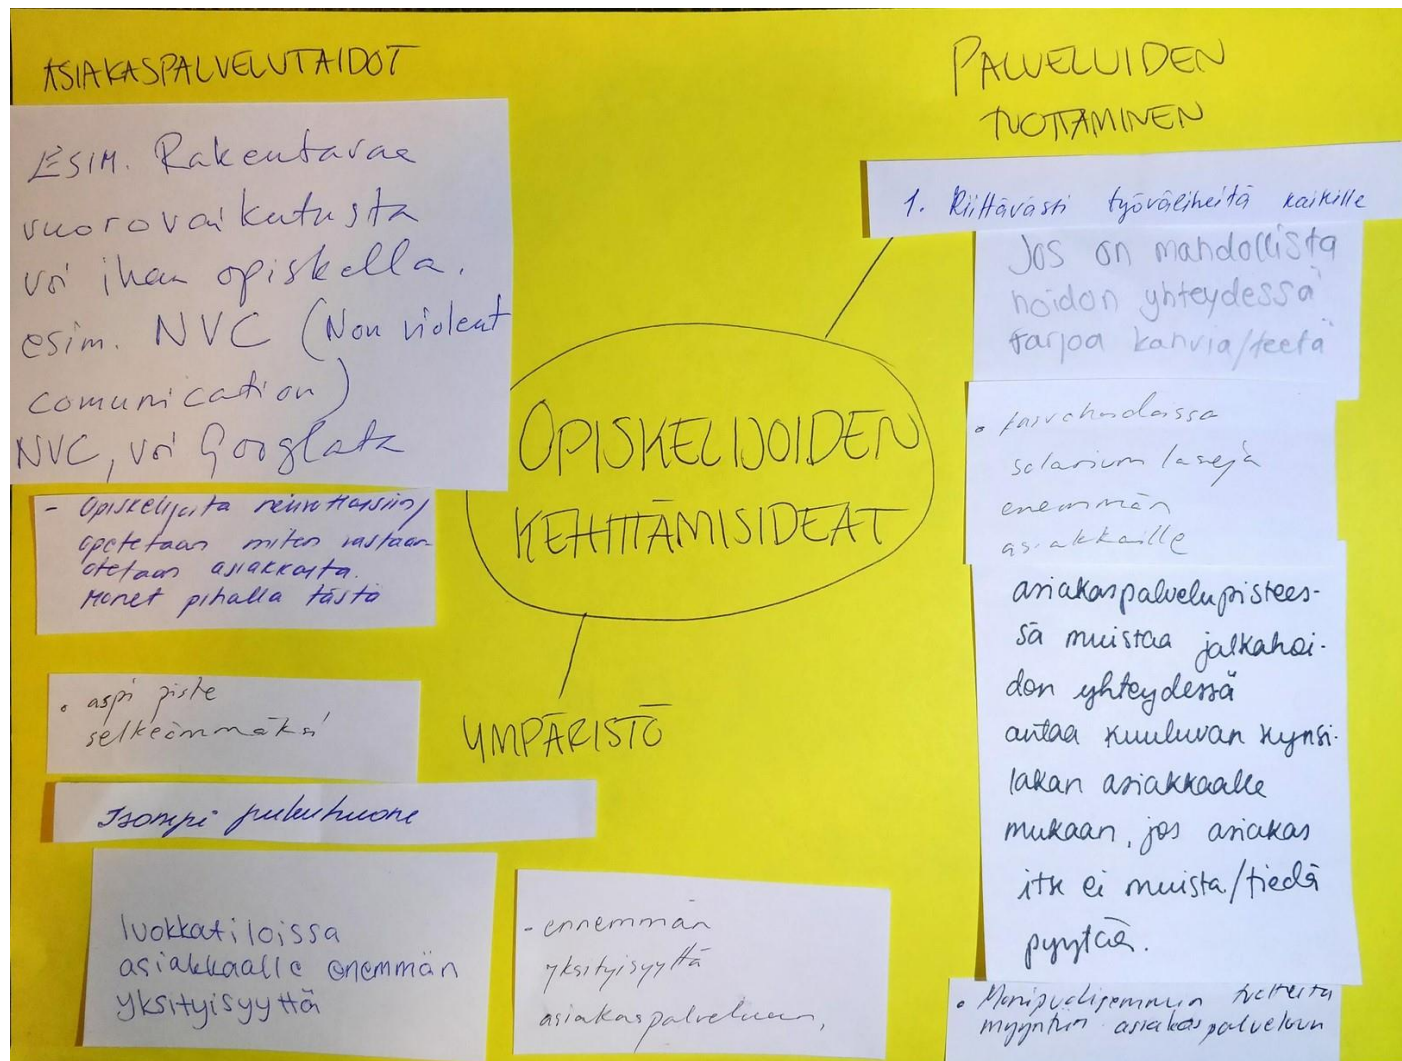 ASIAKASPALVELUTAIDOT
ESIM. Rakentavaa
vuorovaikutusta
voi ihan opiskella.
esim. NVC (Non violent
comunication)
NVC, voi Googlata
- Opiskelijoita neuvottaisiin/
opetetaan miten vastaan
otetaan asiakkaita.
Monet pihalla tästä
• aspi piste
selkeämmäksi
Isompi pukuhuone
luokkatiloissa
asiakkaalle enemmän
yksityisyyttä
OPISKELIJOIDEN
KEHITTÄMISIDEAT
YMPÄRISTÖ
- ennemmän
yksityisyyttä
asiakaspalveluun,
PALVELUIDEN
TUOTTAMINEN
1. Riittävästi työvälineitä kaikille
Jos on mahdollista
hoidon yhteydessä
tarjoa kahvia/teetä
• kasvohoidoissa
solarium laseja
enemmän
asiakkaille
asiakaspalvelupistees-
sä muistaa jalkahoi-
don yhteydessä
antaa kuuluvan kynsi-
lakan asiakkaalle
mukaan, jos asiakas
itse ei muista/tiedä
pyytää.
• Monipuolisemmin tuotteita
myyntiin asiakaspalveluun